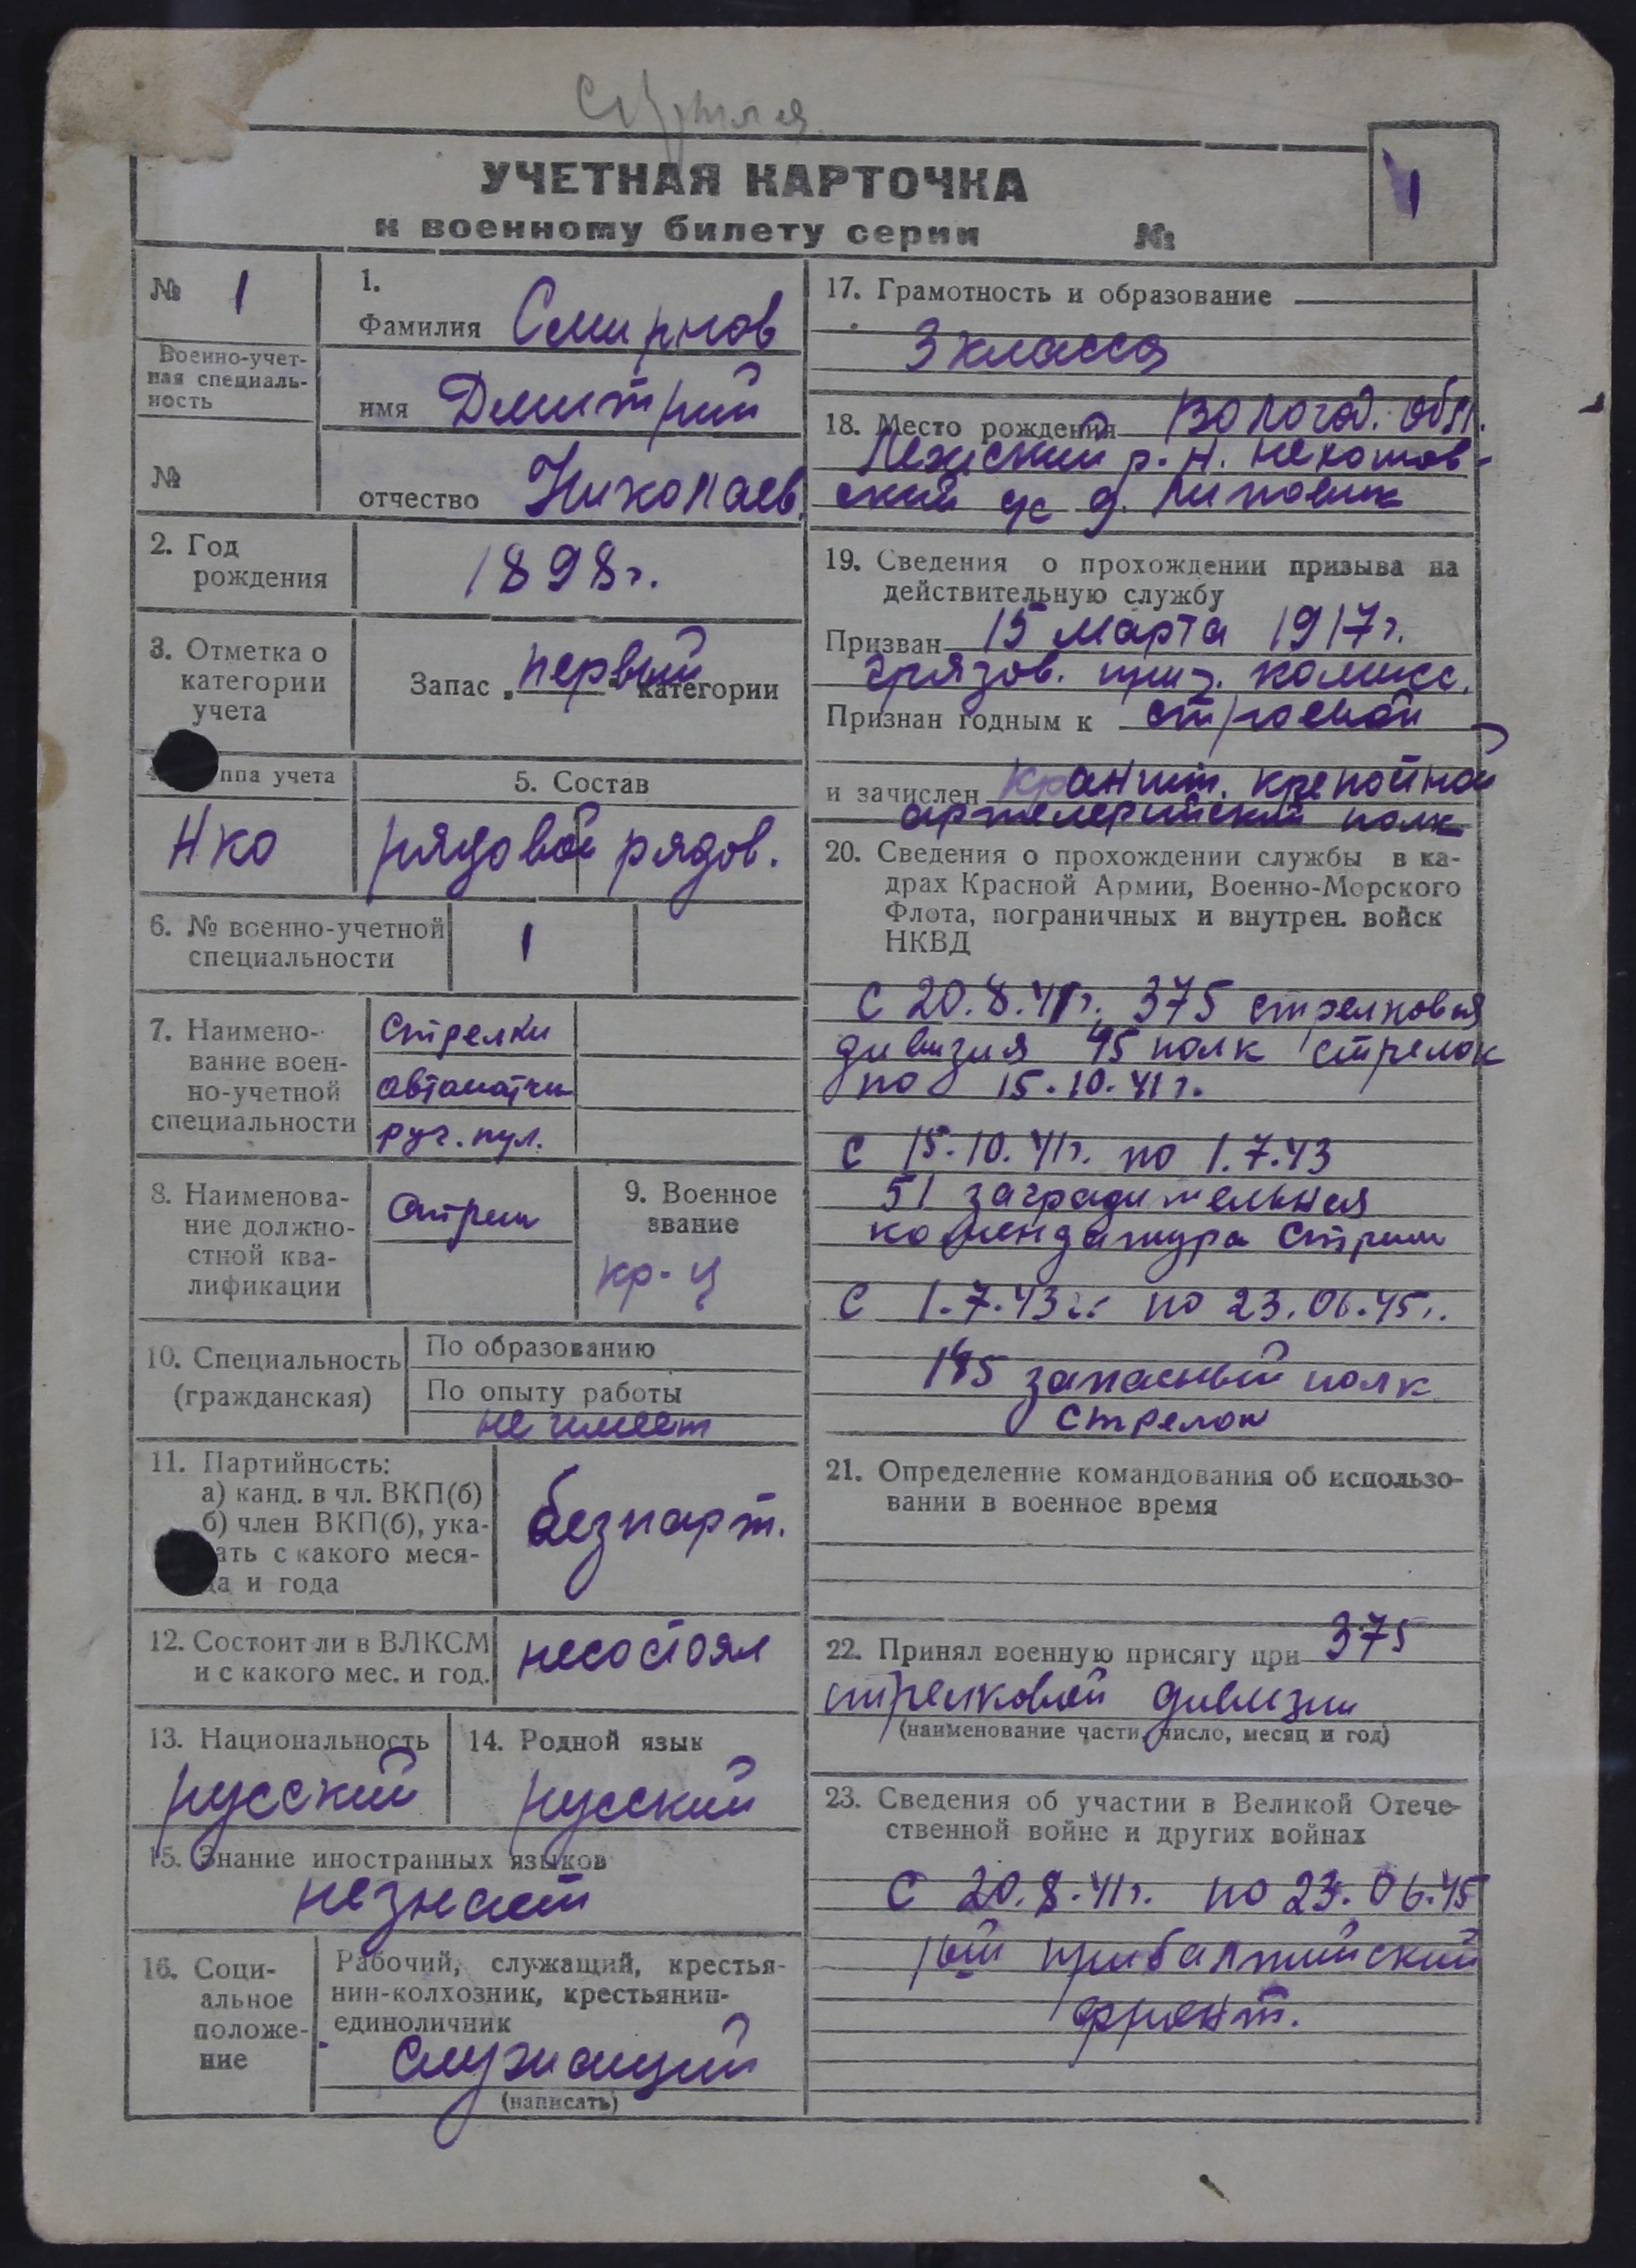 УЧЕТНАЯ КАРТОЧКА
к военному билету серии №
1
№ 1
Военно-учет-
ная специаль-
ность
№
1.
Фамилия Смирнов
имя Дмитрий
отчество Николаев.
2. Год
рождения
1898г.
3. Отметка о
категории
учета
Запас „первый“ категории
ппа учета
НКО
5. Состав
рядовой рядов.
6. № военно-учетной
специальности
1
7. Наимено-
вание воен-
но-учетной
специальности
Стрелки
автоматчи
руч. пул.
8. Наименова-
ние должно-
стной ква-
лификации
Стрел
9. Военное
звание
кр-ц
10. Специальность
(гражданская)
По образованию
По опыту работы
не имеет
11. Партийность:
а) канд. в чл. ВКП(б)
б) член ВКП(б), ука-
ать с какого меся-
ца и года
безпарт.
12. Состоит ли в ВЛКСМ
и с какого мес. и год.
несостоял
13. Национальность
русский
14. Родной язык
русский
15. Знание иностранных языков
незнает
16. Соци-
альное
положе-
ние
Рабочий, служащий, крестья-
нин-колхозник, крестьянин-
единоличник
Служащий
(написать)
17. Грамотность и образование
3 класса
18. Место рождения Вологод. обл.
р.н.
ский с/с д. Липовик
19. Сведения о прохождении призыва на
действительную службу
Призван 15 марта 1917г.
Грязов. приз. комисс.
Признан годным к строевой
и зачислен Краншт. крепостной
артелерийский полк
20. Сведения о прохождении службы в ка-
драх Красной Армии, Военно-Морского
Флота, пограничных и внутрен. войск
НКВД
С 20.8.41г. 375 стрелковая
дивизия 45 полк стрелок
по 15.10.41г.
С 15.10.41г. по 1.7.43
51 заградительная
комендатура Стрел
С 1.7.43г. по 23.06.45г.
запасный полк
стрелок
21. Определение командования об использо-
вании в военное время
22. Принял военную присягу при 375
стрелковой дивизии
(наименование части, число, месяц и год)
23. Сведения об участии в Великой Отече-
ственной войне и других войнах
С 20.8.41г. по 23.06.45
1ый прибалтийский
фронт.